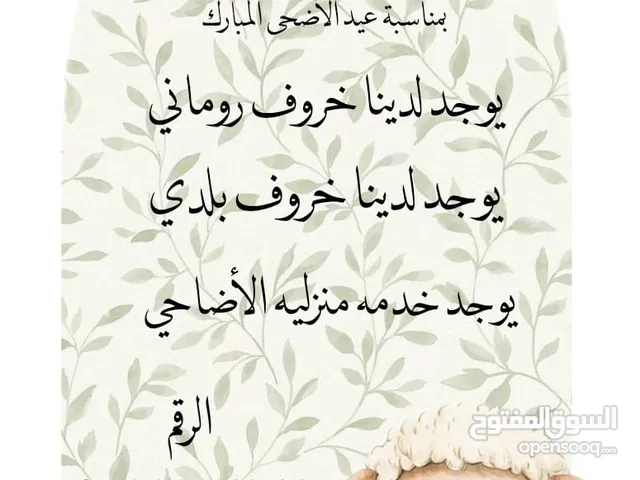 بمناسبة عيد الأضحى المبارك
يوجد لدينا خروف روماني
يوجد لدينا خروف بلدي
يوجد خدمه منزليه الأضاحي
الرقم
السوق المفتوح
opensooq.com